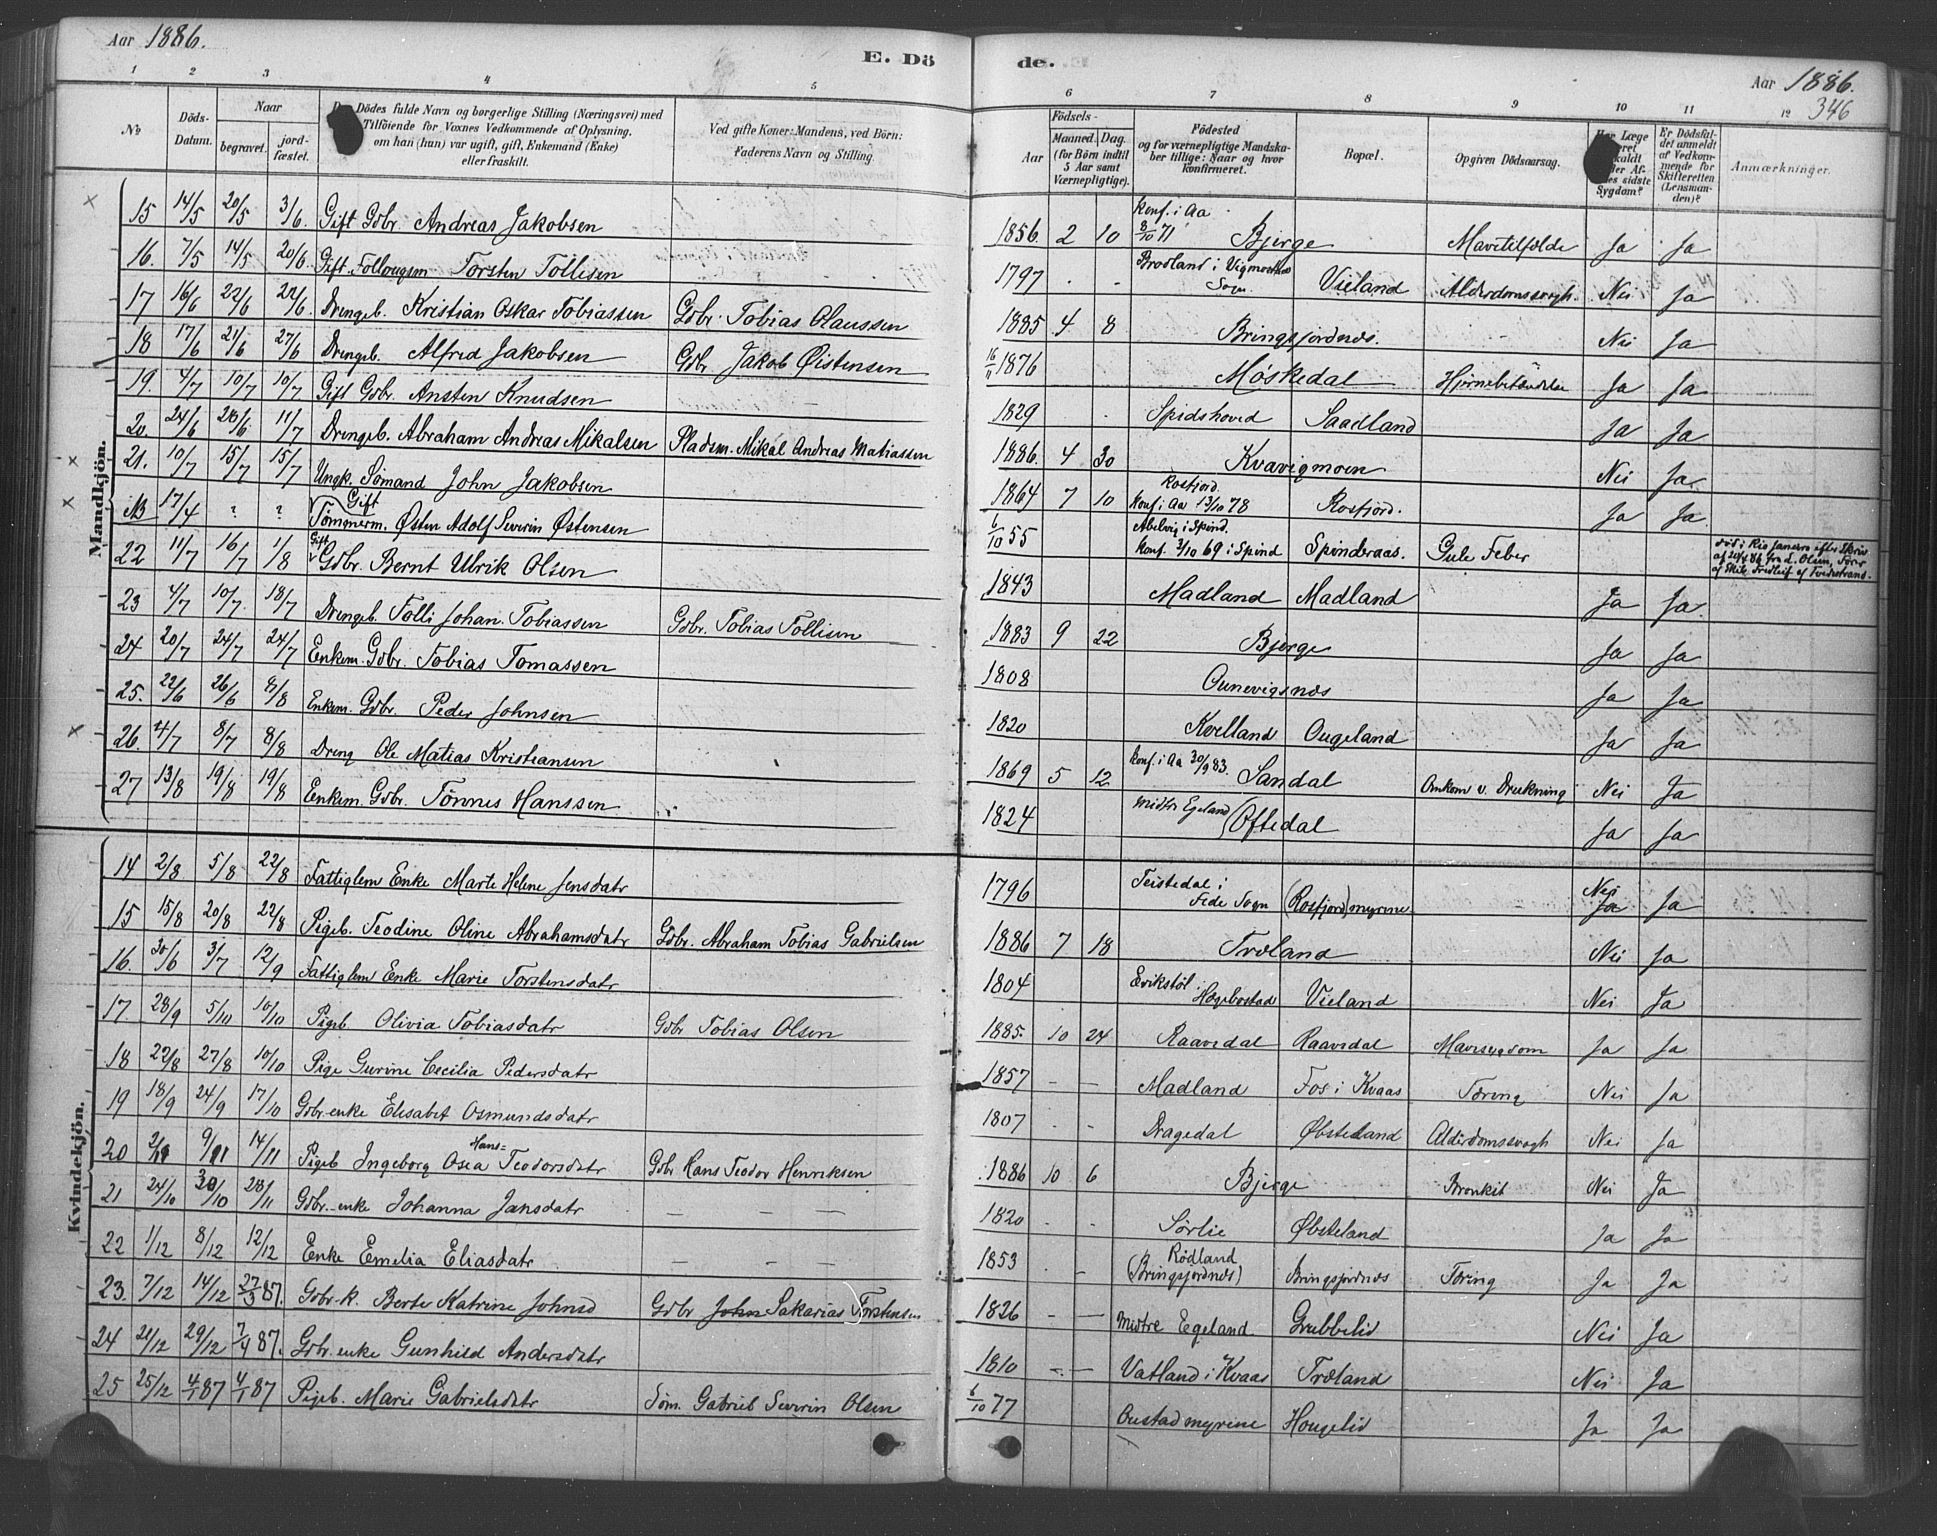 Aar 1886.
E. Dö
1 2 3 4 5
No
Döds-Datum.
Naar
begravet.
jordfæstet.
Dödes fulde Navn og borgerlige Stilling (Næringsvei) med
Tilföiende for Voxnes Vedkommende af Oplysning,
om han (hun) var ugift, gift, Enkemand (Enke)
eller fraskilt.
Ved gifte Koner: Mandens, ved Börn:
Faderens Navn og Stilling.
Mandkjön.
15 14/5 20/5 3/6 Gift Gdbr. Andreas Jakobsen
16. 7/5 14/5 20/6 Gift Follougsm Torsten Tollisen
17 16/6 22/6 22/6 Drengeb. Kristian Oskar Tobiassen Gdbr. Tobias Olaussen
18 17/6 21/6 27/6 Drengeb. Alfred Jakobsen Gdbr Jakob Østensen
19. 4/7 10/7 10/7 Gift Gdbr. Ansten Knudsen
20. 24/6 28/6 11/7 Drengeb. Abraham Andreas Mikalsen Pladsm. Mikal Andreas Matiassen
21. 10/7 15/7 15/7 Ungk. Sømand John Jakobsen
NB 17/4 ? ? Gift Tømmerm. Østen Adolf Severin Østensen
22 11/7 16/7 1/8 Gift Gdbr. Bernt Ulrik Olsen
23 4/7 10/7 18/7 Drengeb. Tolli Johan Tobiassen Gdbr. Tobias Tollisen
24 20/7 24/7 24/7 Enkem. Gdbr. Tobias Tomassen
25. 22/6 26/6 8/8 Enkem. Gdbr. Peder Johnsen
26. 4/7 8/7 8/8 Dreng Ole Matias Kristiansen
27 13/8 19/8 19/8 Enkem. Gdbr. Tönnes Hanssen
Kvindekjön.
14 2/8 5/8 22/8 Fattiglem Enke Marte Helene Jensdatr
15 15/8 20/8 22/8 Pigeb. Teodine Oline Abrahamsdatr Gdbr. Abraham Tobias Gabrielsen
16. 30/6 3/7 12/9 Fattiglem Enke Marie Torstensdatr
17. 28/9 5/10 10/10 Pigeb Olivia Tobiasdatr Gdbr Tobias Olsen
18 22/8 27/8 10/10 Pige Gurine Cecilia Pedersdatr
19 18/9 24/9 17/10 Gdbr.enke Elisabet Osmundsdatr
20 9/11 14/11 Pigeb Ingeborg Osea Hans=Teodorsdatr Gdbr Hans Teodor Henriksen
21 24/10 30/10 28/11 Gdbr.-enke Johanna Jansdatr — — —
22 1/12 8/12 12/12 Enke Emelia Eliasdatr — — —
23. 7/12 14/12 27/3 87. Gdbr.k. Berte Katrine Johnsd Gdbr John Sakarias Torstensen
24 21/12 29/12 7/4 87. Gdbr.enke Gunhild Andersdatr
25 25/12 4/1 87 4/1 87 Pigeb. Marie Gabrielsdatr Søm. Gabriel Severin Olsen
de.
Aar 1886.
346
6 7 8 9 10 11 12
Födsels-
Aar
Maaned.
Dag.
(for Börn indtil
5 Aar samt
Værnepligtige).
Födested
og for værnepligtige Mandska-
ber tillige: Naar og hvor
konfirmeret.
Bopæl.
Opgiven Dödsaarsag.
Har Læge
Sygdom?
Er Dödsfal-
det anmeldt
af Vedkom-
mende for
Skifteretten
(Lensman-
den)?
Anmærkninger.
1856 2 10 Konf. i Aa 8/10 71 Bjerge Mavetilfælde Ja Ja
1797 . . Brodland i Vigmostad Sogn Vieland Alderdomssvagh. Nei Ja
1885 4 8 Bringsfjordnes. Nei Ja
16/11 1876 Møskedal Hjernebetændelse Ja Ja
1829 . Spidshoved Saadland Ja Ja
1886. 4 30 Kvavigmoen Nei Ja.
1864 7 10 Rosfjord. Konf. i Aa 13/10 78 Rosfjord. Ja Ja
6/10 55 Abelvig i Spind. Konf. 3/10 69 i Spind Spinderaas. Gule Feber død i Rio Janeiro efter Skriv af 20/4 86 fra L. Olsen, Fører af Skib Fredleif af Tvedestrand.
1843 Madland Madland Ja Ja.
1883 9 22 Bjerge Ja Ja
1808 Ounevigsnæs Ja Ja
1820 Kvelland Ougeland Ja Ja
1869 5 12 Konf. i Aa 30/9 83. Sandal Omkom v. Drukning Nei Ja
1824 Midtre Egeland (Oftedal Ja Ja
1796 Teistedal i Fede Sogn (Rosfjord)myrene Nei Ja Ja
1886 7 18 Træland Nei Ja
1804 Erikstøl Hægebostad Vieland Nei Ja
1885. 10 24 Raavedal Raavedal Mavesygdom Ja Ja
1857 — — Madland Fos i Kvaas Tæring Nei Ja
1807 . . Dragedal Øbsteland Alderdomssvagh Nei Ja
1886 10 6 Bjerge Bronkit Nei Ja
1820 . . Sørlie Øbsteland Ja Ja
1853 . — Rødland (Bringsfjordnes) Bringsfjordnæs Tæring Ja Ja
1826 — — Midtre Egeland. Grubbelid Nei Ja
1810 — — Vatland i Kvaas Træland Nei Ja
6/10 77 Oustadmyrene Hougelid Ja Ja